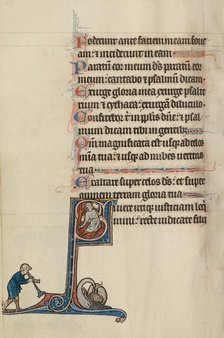 Foderunt ante faciem meam foue
am: ⁊ inciderunt in eam.
Paratũ cor meum dſ paratũ cor
meum: cantabo ⁊ pſalmũ dicam.
Exurge gloria mea exurge pſalteri
um ⁊ cythara: exurgã diluculo.
Confitebor ti in pplis dñe: ⁊ pſal
mum dicam tibi in gentibꝫ
Qm magnificata eſt uſqꝫ ad celos
mia tua: ⁊ uſqꝫ ad nubes ueritas
tua
Exaltare ſuper celos dſ: et ſuper
omnem terram gloria tua
Si uere utiqꝫ iuſticiam loq̃
mini: recte iudicate fili